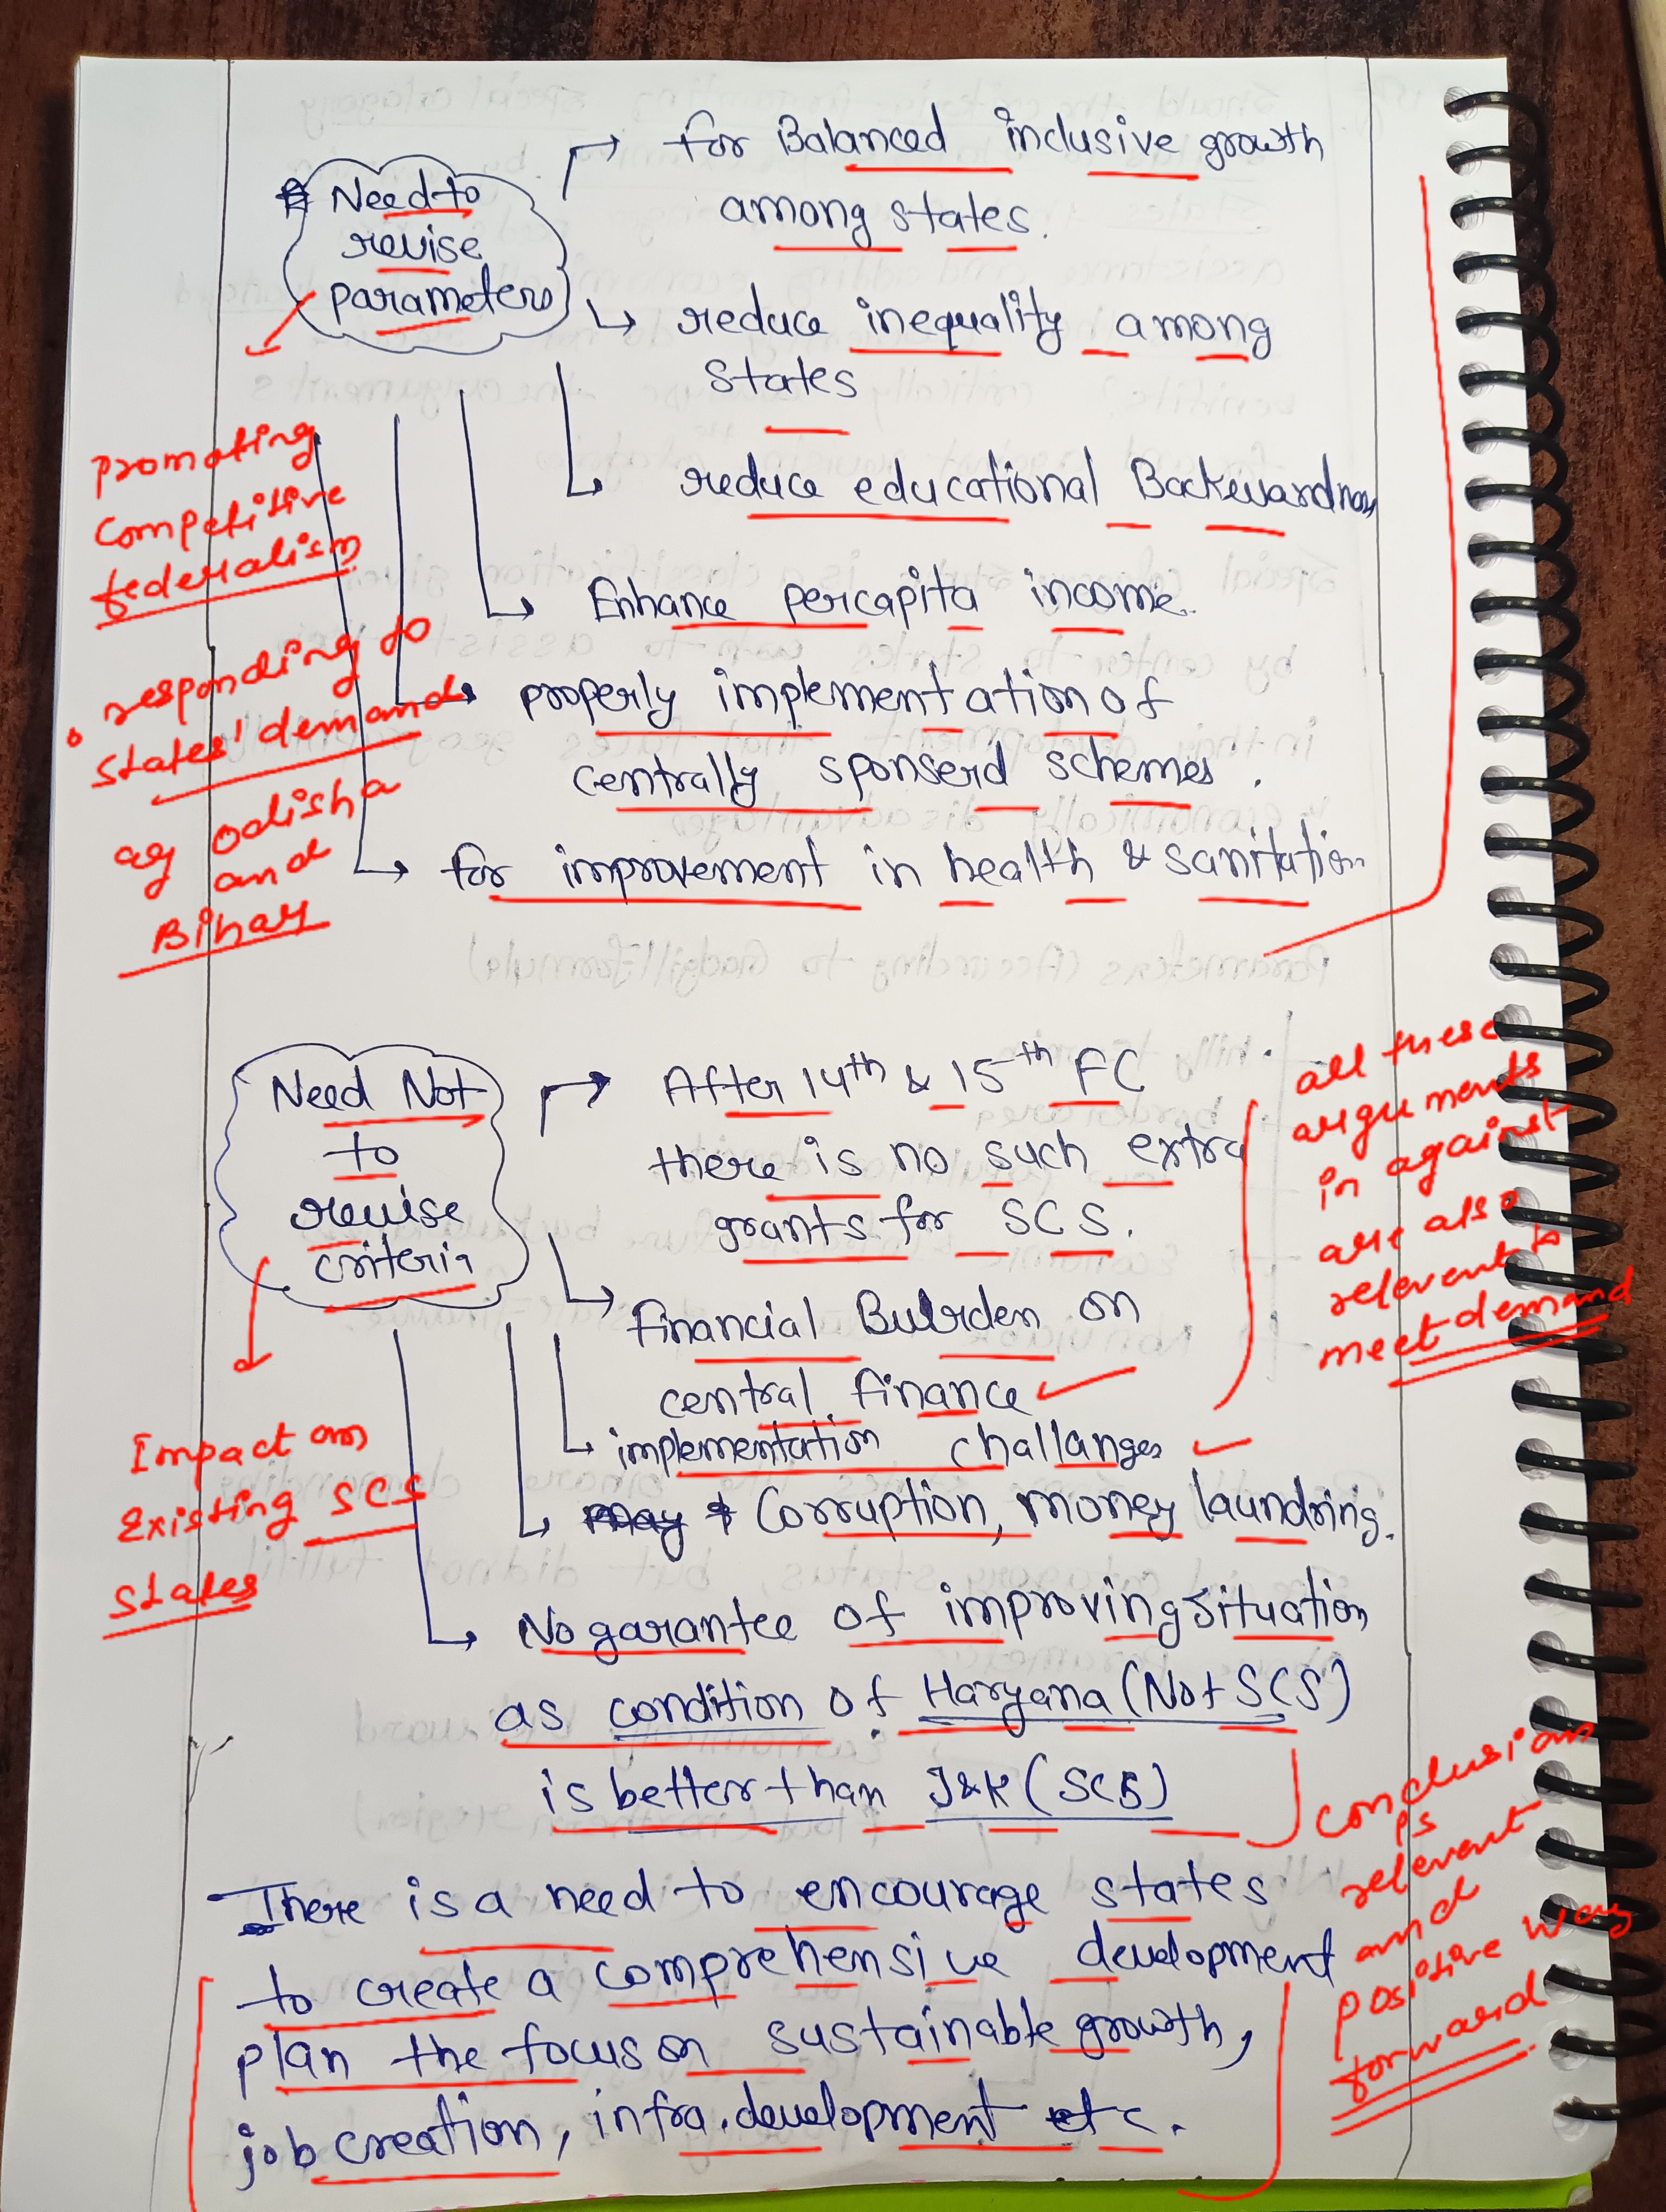 Need to
revise
parameters
for Balanced inclusive growth
among states.
reduce inequality among
states
reduce educational Backwardness
Enhance percapita income.
properly implementation of
centrally sponserd schemes.
for improvement in health & sanitation
promoting
competitive
federalism
responding to
states' demand
eg Odisha
and
Bihar
Need Not
to
revise
criteria
After 14th & 15th FC
there is no such extra
grants for SCS.
financial Burden on
central finance
implementation challanges
Corruption, money laundring.
No garantee of improving situation
as condition of Haryana (Not SCS)
is better than J&K (SCS)
all these
arguments
in against
are also
relevent to
meet demand
Impact on
Existing SCS
states
There is a need to encourage states
to create a comprehensive development
plan the focus on sustainable growth,
job creation, infra. development etc.
conclusion
is
relevent
and
positive way
forward